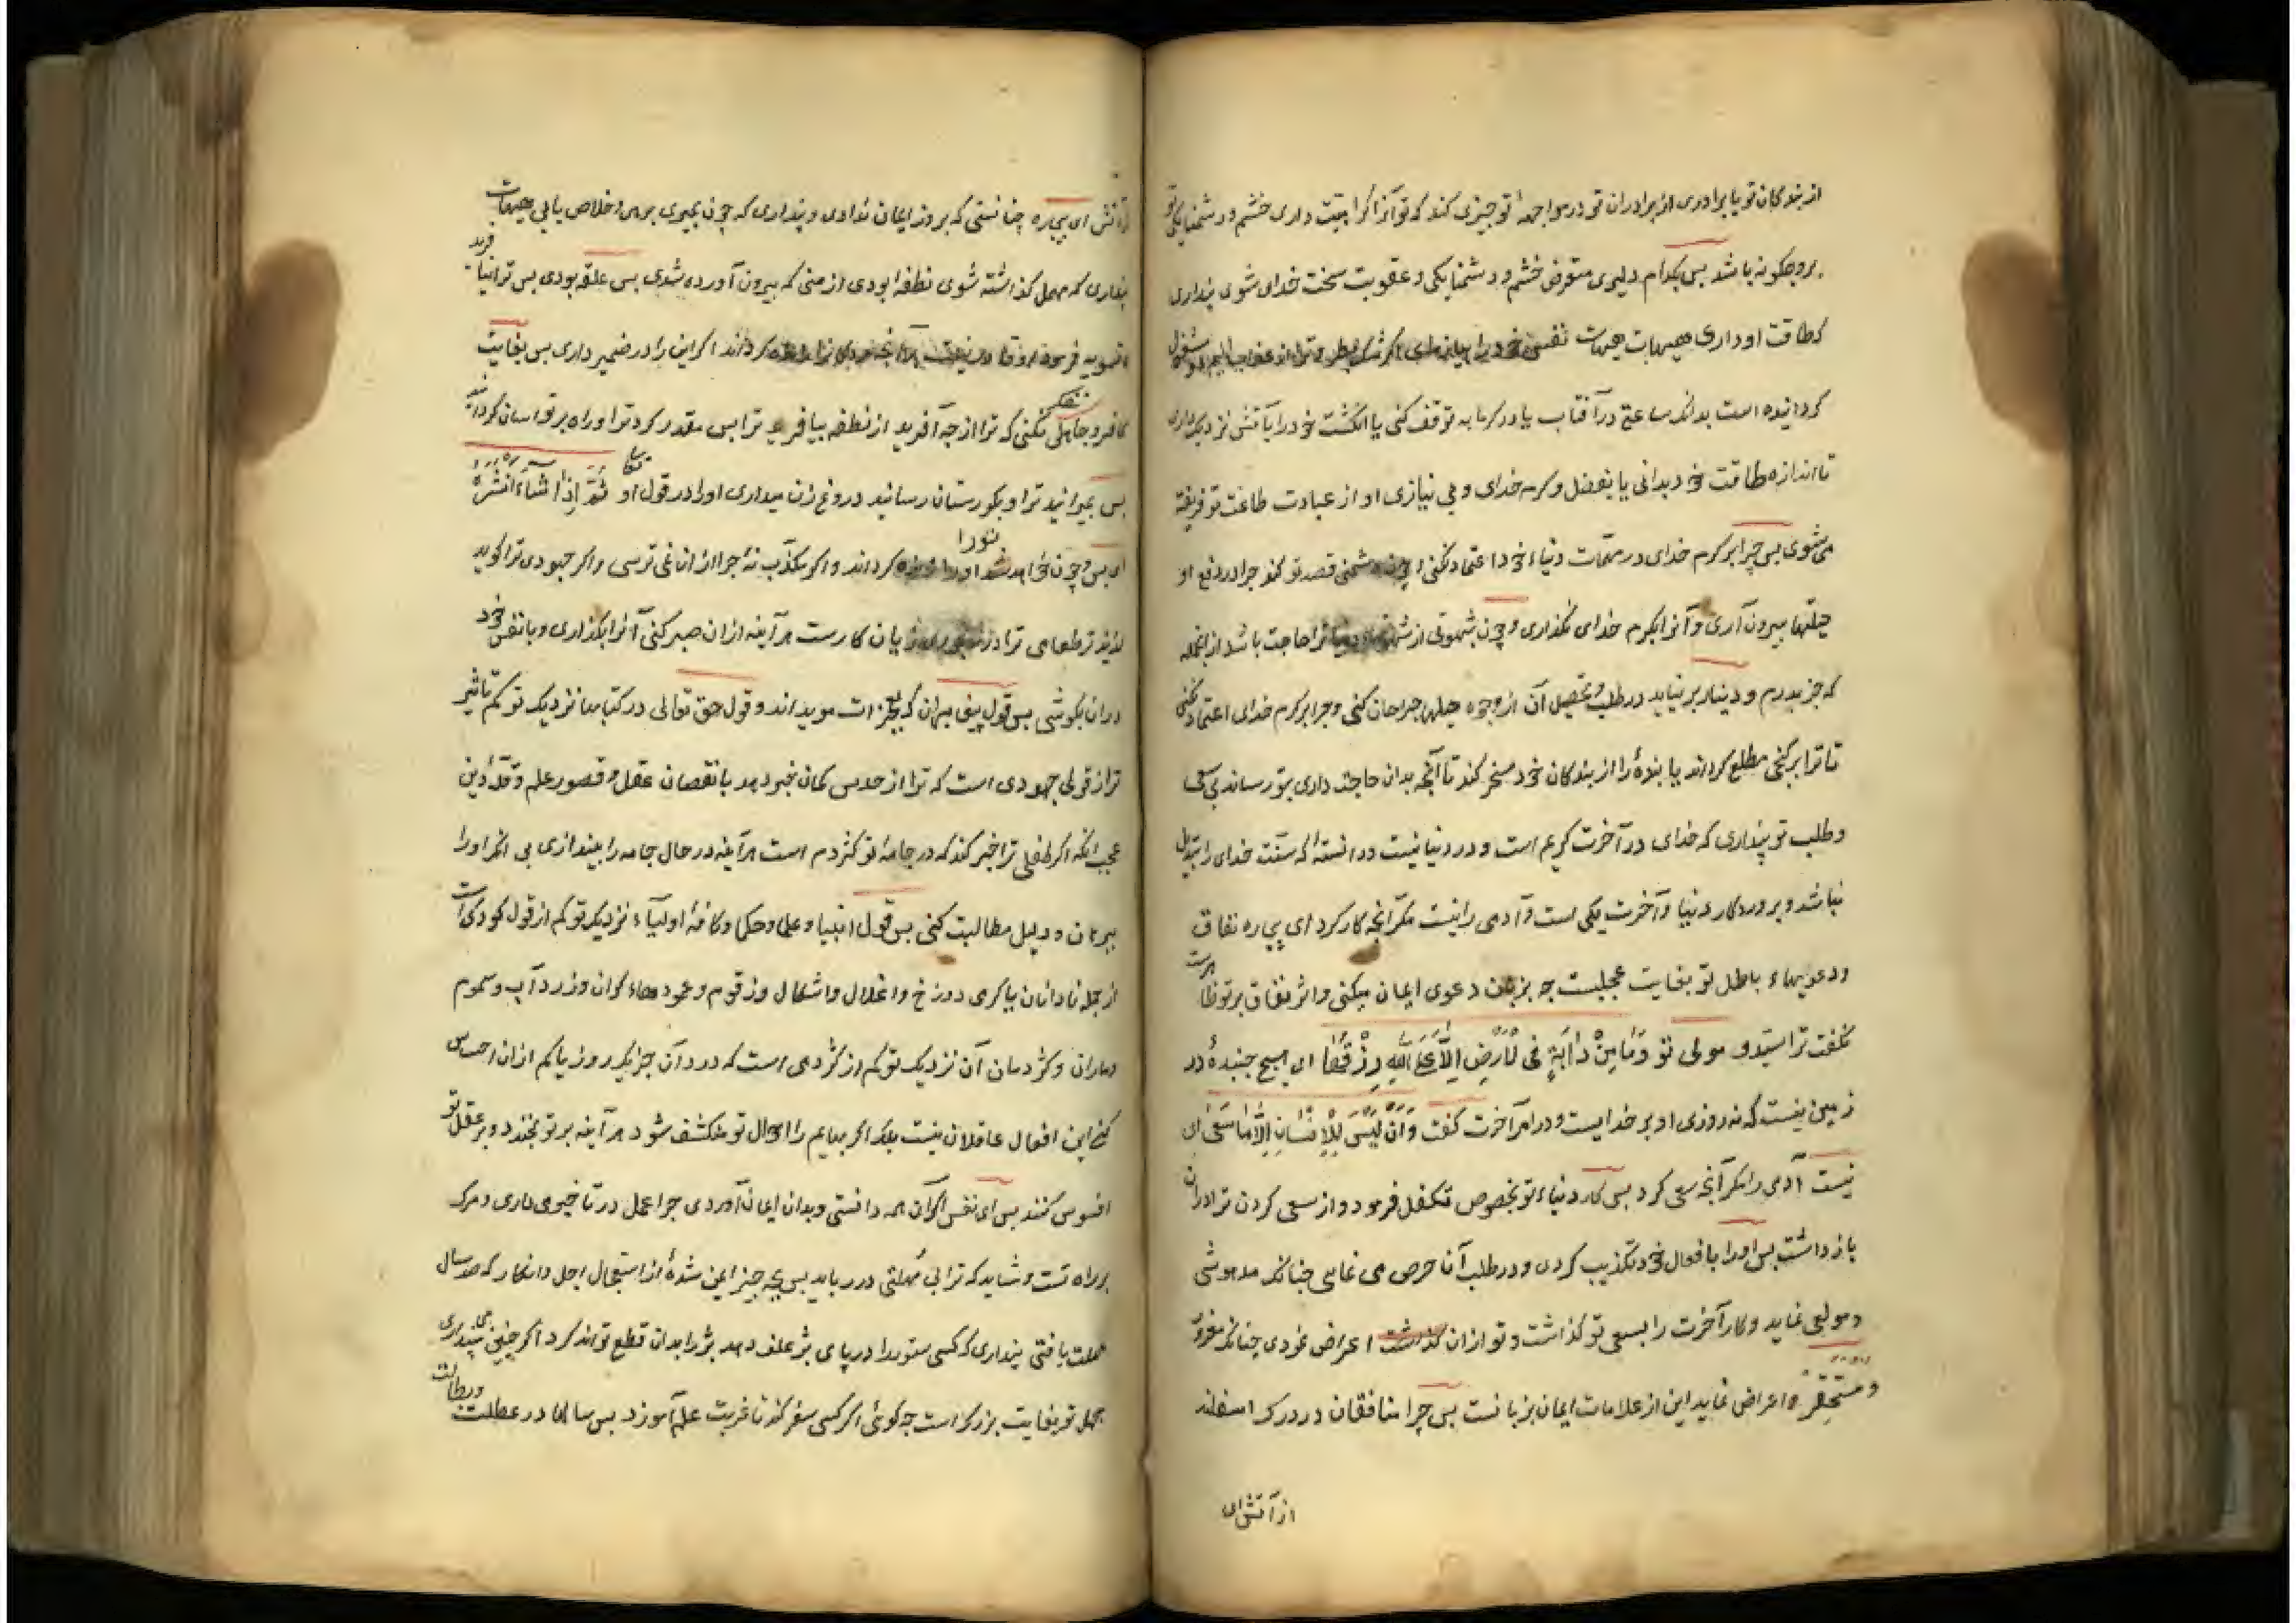 از بندکان تو یا برادری از برادران تو در مواجههٔ تو چیزی کند که تو آنرا کراهیت داری خشم و دشمنایکی تو
برو چکونه باشد بس بکدام دلیری متعرض خشم و دشمنایکی و عقوبت سخت خدای شوی پنداری
که طاقت او داری هیهات هیهات نفس خود را بیازمای اکر
کردانیده است بدانک ساعتی در آفتاب یا در کرمابه توقف کنی یا انکشت خود را بآتش نزدیک داری
تا اندازه طاقت خود بدانی یا بفضل و کرم خدای و بی نیازی او از عبادت طاعت تو فریفته
می شوی بس چرا بر کرم خدای در مهمّات دنیاء خود اعتماد نکنی و چون دشمنی قصد تو کند چرا در دفع او
حیلتها بیرون آری و آنرا بکرم خدای نکذاری و چون بشهوتی از شهوتهاء دنیا ترا حاجت باشد از انجمله
که جز بدرم و دینار بر نیاید در طلب و تحصیل آن از وجوه حیلها جرا جان کنی و جرا بر کرم خدای اعتماد نکنی
تا ترا بر کنجی مطلع کرداند یا بندهٔ را از بندکان خود مسخر کند تا آنچه بدان حاجت داری بتو رساند بی سعی
و طلب تو پنداری که خدای در آخرت کریم است و در دنیا نیست و دانستهٔ که سنّت خدای را تبدیل
نباشد و پروردکار دنیا و آخرت یکی است و آدمی را نیست مکر آنچه کار کرد ای بیچاره نفاق
و دعویهاء باطل تو بغایت عجیبست چه بزبان دعوی ایمان میکنی و اثر نفاق بر تو ظاهرست
نکفت ترا سیّد و مولی تو وَمَا مِنْ دَآبَّةٍ فِی الْاَرْضِ اِلَّا عَلَی اللّٰهِ رِزْقُهَا ای هیچ جنبدهٔ در
زمین نیست که نه روزی او بر خدایست و در امر آخرت کفت وَاَنْ لَیْسَ لِلْاِنْسَانِ اِلَّا مَا سَعٰی ای
نیست آدمی را مکر آنچه سعی کرد بس کار دنیاء تو بخصوص تکفل فرمود و از سعی کردن ترا در ان
باز داشت بس او را بافعال خود تکذیب کردی و در طلب آن حرص می نمایی چنانک مدهوشی
و مولعی نماید و کار آخرت را بسعی تو کذاشت و تو از ان کذشت اعراض نمودی چنانک مغرور
و مستحقره اعراض نماید این از علامات ایمان بزبانست بس چرا منافقان در درک اسفلند
از آتش ای
از آتش ای بیچاره چنانستی که بروز ایمان نداری و پنداری که چون بمیری برهی و خلاص یابی هیهات
پنداری که مهمل کذاشته شوی نطفهٔ بودی از منی که بیرون آورده شدی بس علقه بودی بس ترا بیافرید
و تسویه فرمود او قادر نیست بر آنچه کرداند اکر این را در ضمیر داری بس بغایت
کافر و جاهلی تفکر نکنی که ترا از چه آفرید از نطفه بیافرید ترا بس مقدر کرد ترا و راه بر تو آسان کردانید
بس بمیرانید ترا و بکورستان رسانید دروغ زن میداری او را در قول او تعالی ثُمَّ اِذَا شَآءَ اَنْشَرَهٗ
ای بس چون خواهد تو را زنده کرداند و اکر مکذّب نهٔ چرا از آن نمی ترسی و اکر جهودی ترا کوید
لذیذ تر طعامی ترا در رنجوری زیان کارست هر آینه از ان صبر کنی آنرا بکذاری و با نفس خود
در ان بکوشی بس قول پیغامبران که بمعجزات مویداند و قول حق تعالی در کتابها نزدیک تو کم تاثیر
تر از قول جهودی است که ترا از حدس کمان خبر دهد با نقصان عقل و قصور علم و قلّهٔ دین
عجب انکه اکر طفلی ترا خبر کند که در جامهٔ تو کژدم است هر آینه در حال جامه را بیندازی بی انکه او را
ببرهان و دلیل مطالبت کنی بس قول انبیا و علما و حکما و کافهٔ اولیآء نزدیک تو کم از قول کودکی است
از جمله نادانان یا کرمی دوزخ و اغلال و اشکال و زقوم و عمودهاء کران و زرداب و سموم
و ماران و کژدمان آن نزدیک تو کم از کژدمی است که درد آن جز یک روز یا کم از ان احساس
کنی این افعال عاقلان نیست بلکه اکر بهایم را احوال تو منکشف شود هر آینه بر تو بخندد و بر عقل تو
افسوس کنند بس ای نفس اکر آن همه دانستی و بدان ایمان آوردی چرا عمل در تاخیر می داری و مرک
بر راه تست و شاید که ترا بی مهلتی در رباید بس بچه چیز ایمن شدهٔ از استعجال اجل و انکار که صد سال
مهلت یافتی پنداری که کسی ستور را در پای بژ علف دهد بژ را بدان قطع تواند کرد اکر چنین می پنداری
جهل تو بغایت بزرکست چه کوئی اکر کسی سفر کند تا غربت علم آموزد بس سالها در عطلت و بطالت